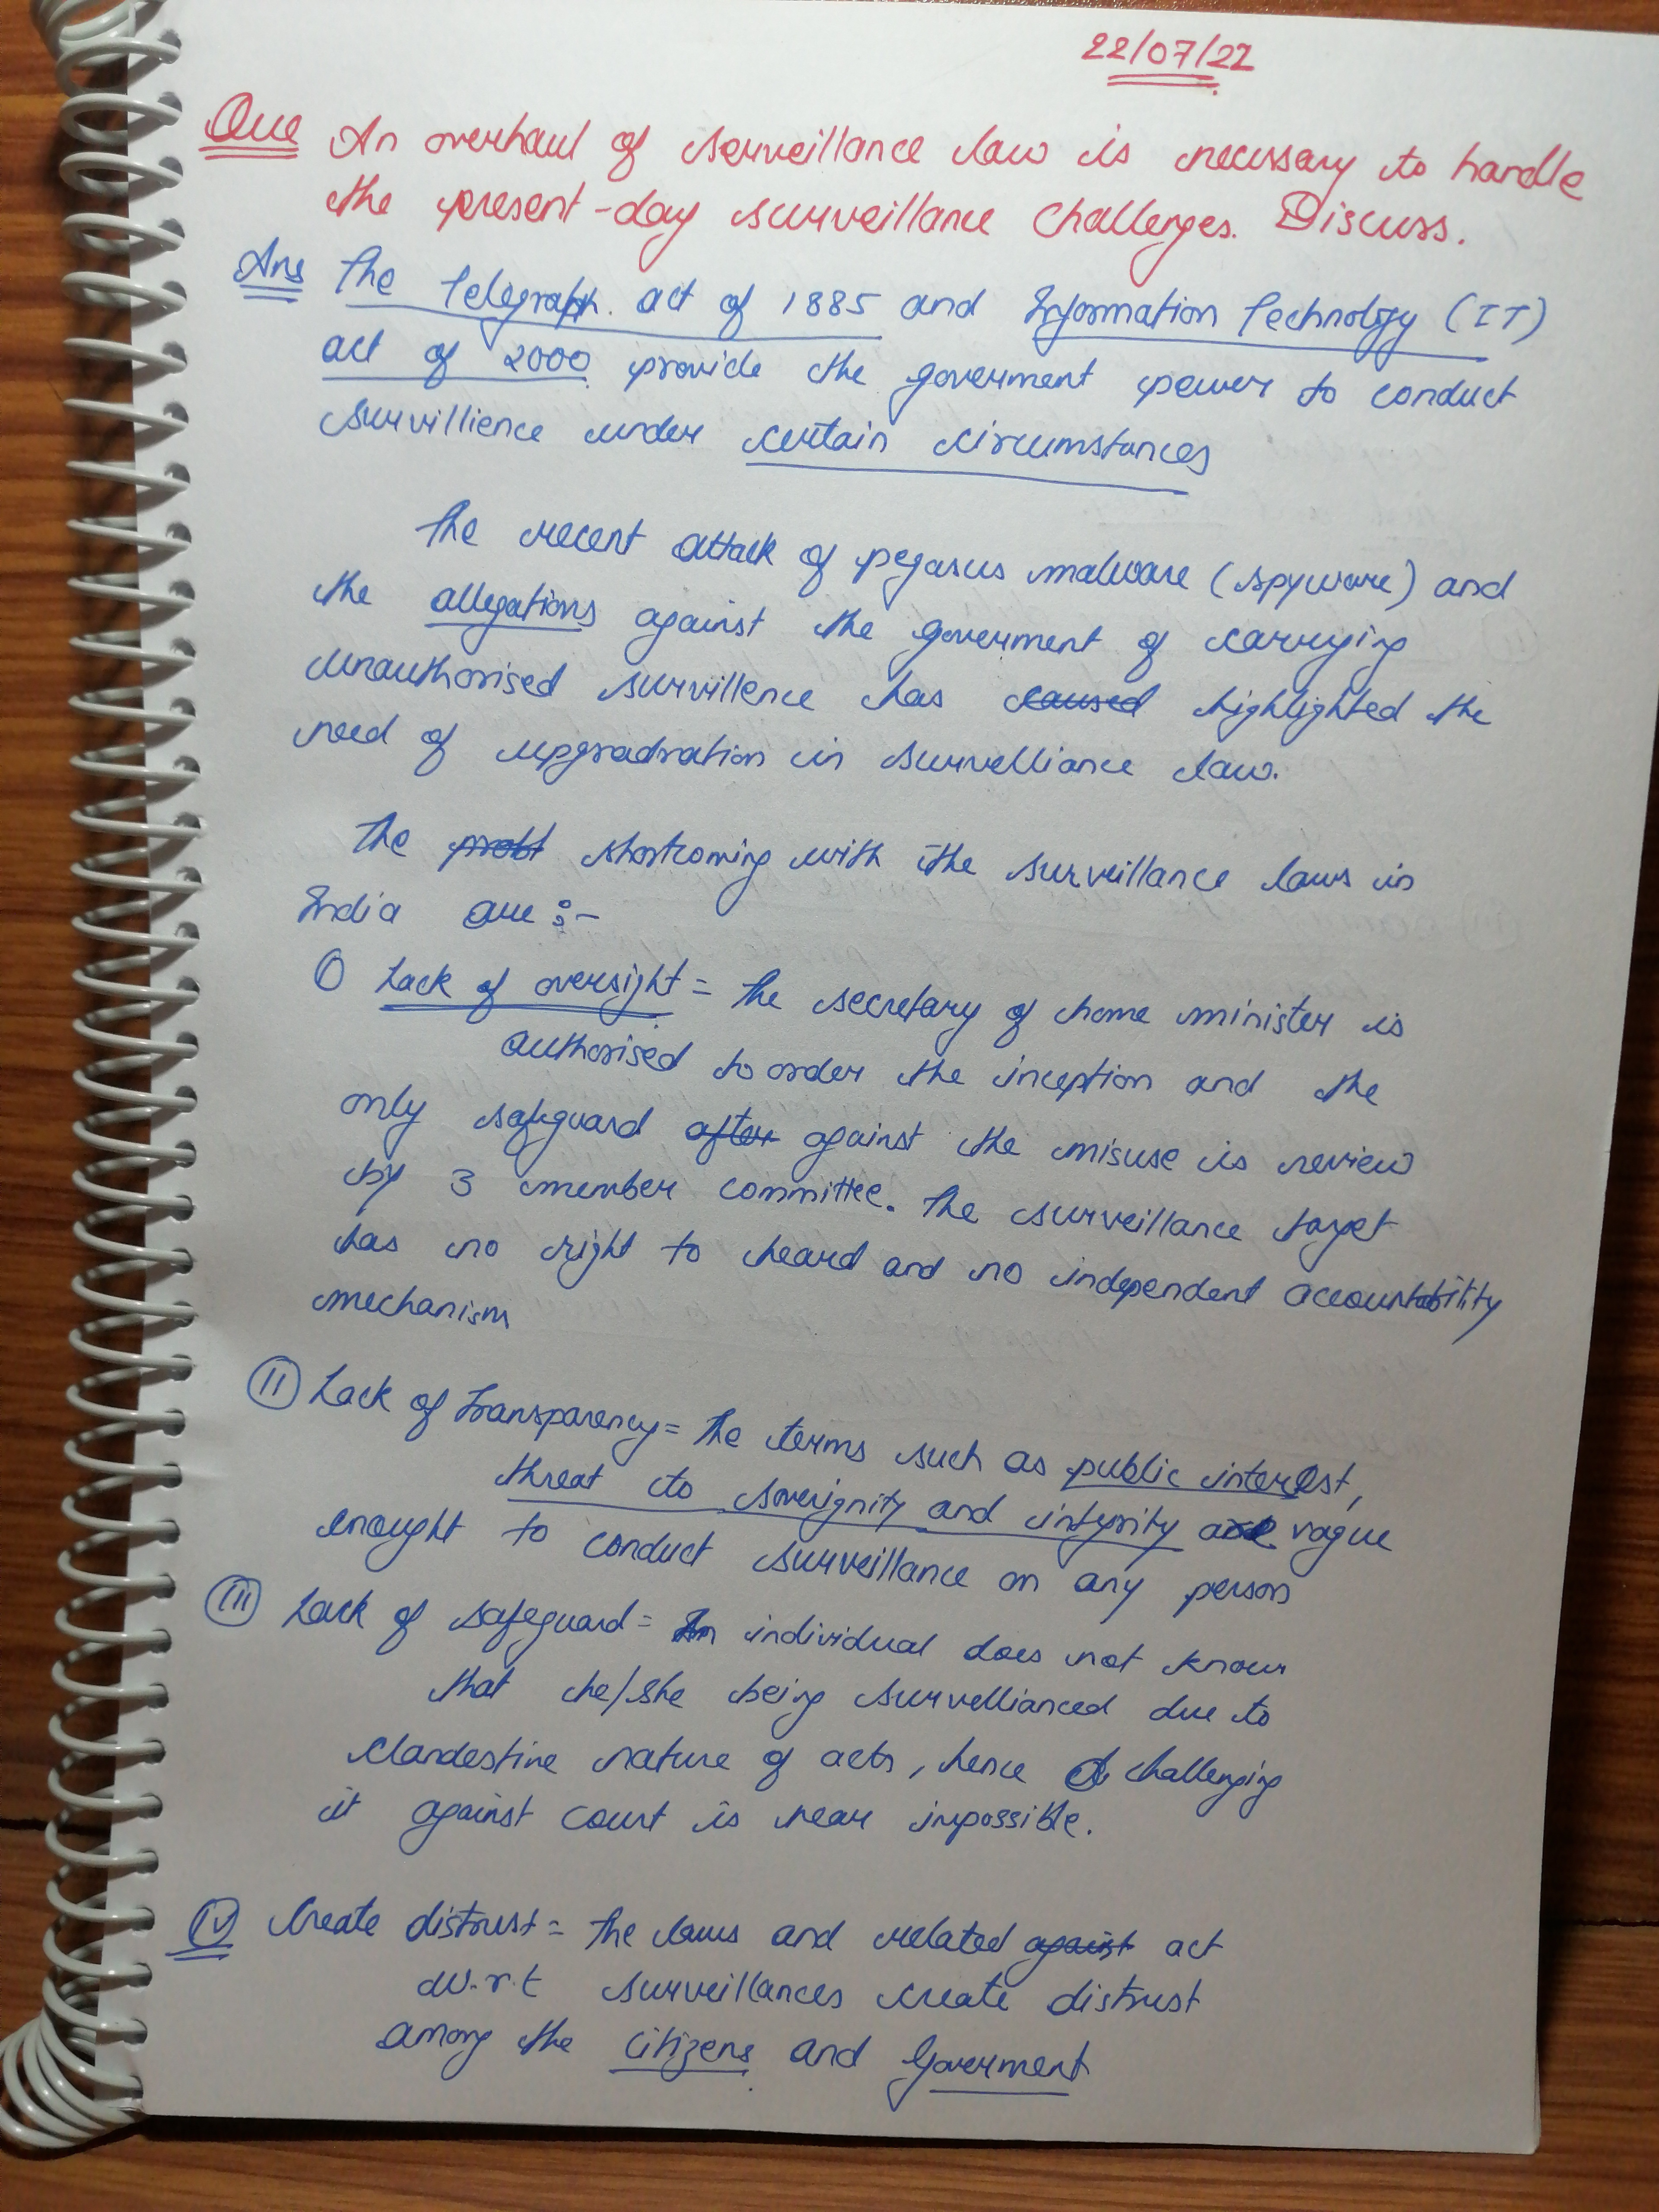 22/07/22
Que An overhaul of serveillance law is necessary to handle
the present-day surveillance challenges. Discuss.
Ans The Telegraph. act of 1885 and Information Technology (IT)
act of 2000 provide the goverment power to conduct
survillience under certain circumstances
The recent attack of pegasus malware (spyware) and
the allegations against the goverment of carrying
unauthorised survillence has caused highlighted the
need of upgradration in survelliance law.
The probl shortcoming with the surveillance laws in
India are :-
① Lack of oversight = The secretary of home minister is
authorised to order the inception and the
only safeguard after against the misuse is review
by 3 member committee. The surveillance target
has no right to heard and no independent accountability
mechanism
(II) Lack of Transparency = The terms such as public interest,
threat to soverignity and integrity are vague
enought to conduct surveillance on any person
(III) Lack of safeguard = An individual does not know
that he/she being survellianced due to
clandestine nature of acts, hence challenging
it against court is near impossible.
(IV) Create distrust = The laws and related against act
w.r.t surveillances create distrust
among the citizens and Goverment